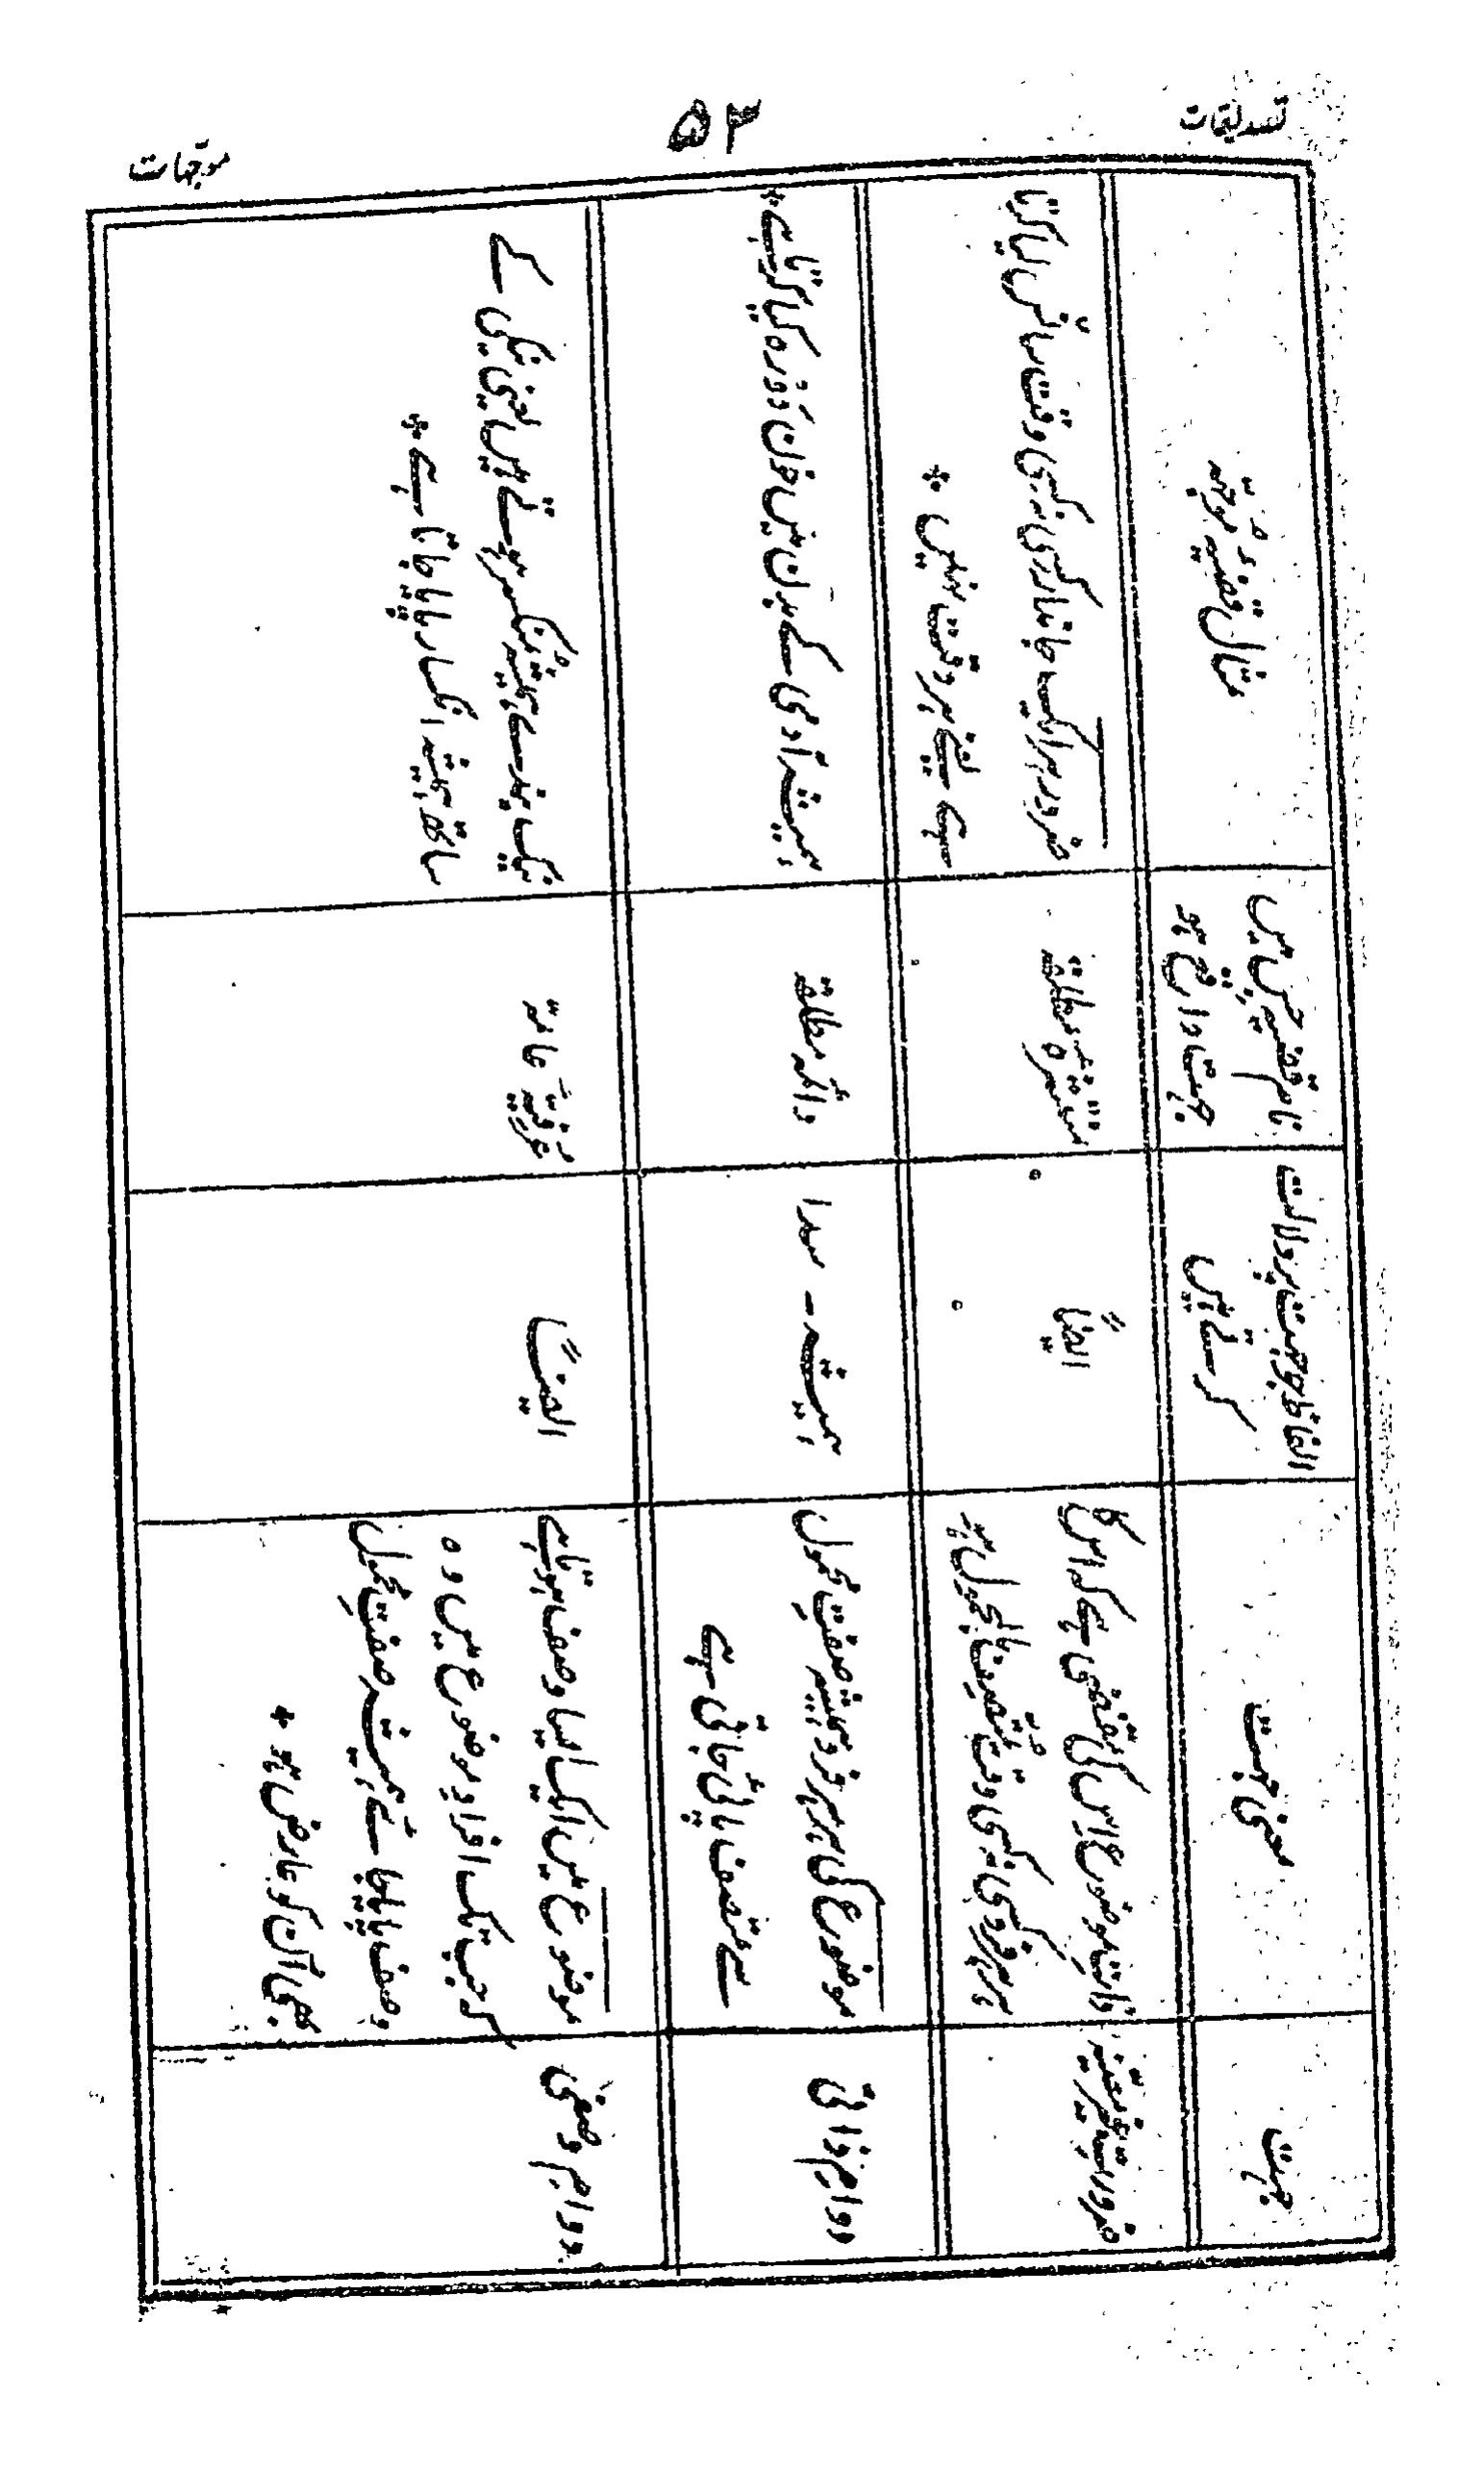 تصدیقات
۵۳
موجّہات
جہت
معنی جہت
الفاظ جو جہت پر دلالت
کرتے ہیں
نام قضیہ جس میں
جہت واقع ہو
مثال قضیہ موجّہہ
ضرورت غیر معیّنہ
ذات موضوع اس کی مقتضی ہے کہ اس کا
ہر ہر فرد کسی نہ کسی وقت متصف بالمحمول ہو
ایضاً
منتشرہ مطلقہ
ضرور ہر ایک جاندار کسی نہ کسی وقت سانس لیا کرتا
ہے یعنے ہر وقت نہیں *
دوام ذاتی
موضوع کی ہر ہر فرد ہمیشہ صفت محمول
سے متصف پائی جاتی ہے
ہمیشہ - سدا
دائمہ مطلقہ
ہمیشہ آدمی کے بدن میں خون دورہ کیا کرتا ہے *
دوام وصفی
موضوع میں ایک ایسا وصف ہوتا ہے
کہ جب تک افراد موضوع میں وہ
وصف پایا جائے ہمیشہ صفت محمول
بھی اُن کو عارض ہو *
ایضاً
عرفیہ عامہ
نیک بندے ہمیشہ منکسر ہوتے ہیں یعنی نیکی کے
ساتھ ہمیشہ انکسار پایا جاتا ہے *